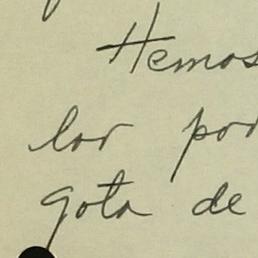 Hemos
lor por
gota de